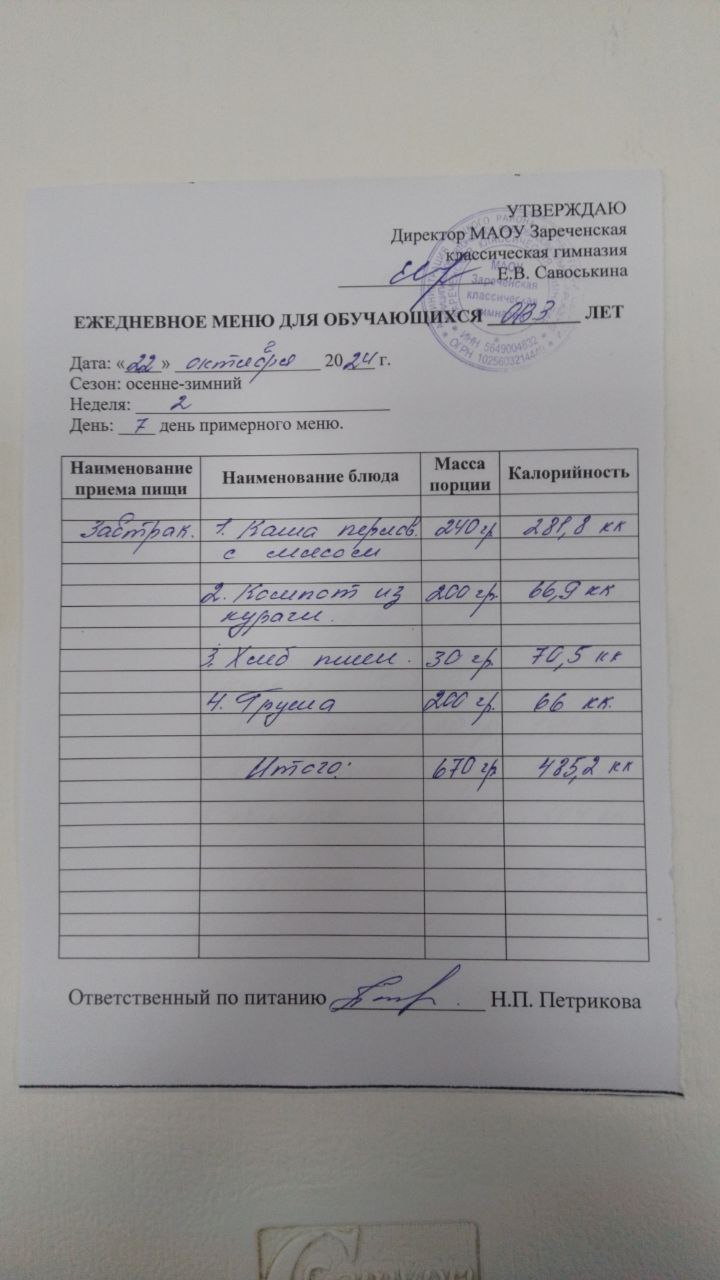 УТВЕРЖДАЮ
Директор МАОУ Зареченская
классическая гимназия
Е.В. Савоськина
МАОУ
Зареченская
классическая
гимназия
ИНН 5649004832
ЕЖЕДНЕВНОЕ МЕНЮ ДЛЯ ОБУЧАЮЩИХСЯ ОВЗ ЛЕТ
Дата: «22» октября 2024 г.
Сезон: осенне-зимний
Неделя: 2
День: 7 день примерного меню.
Наименование приема пищи Наименование блюда Масса порции Калорийность
Завтрак. 1. Каша перлов. 240 гр 281,8 кк
с мясом
2. Компот из 200 гр. 66,9 кк
кураги.
3. Хлеб пшен. 30 гр. 70,5 кк
4. Груша 200 гр. 66 кк.
Итого: 670 гр 485,2 кк
Ответственный по питанию Н.П. Петрикова